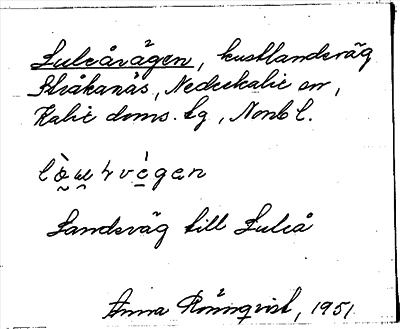 Luleåvägen, kustlandsväg
Stråkanäs, Nederkalix sn,
Kalix doms. tg, Nonb l.
Landsväg till Luleå
Anna Rönnqvist, 1951